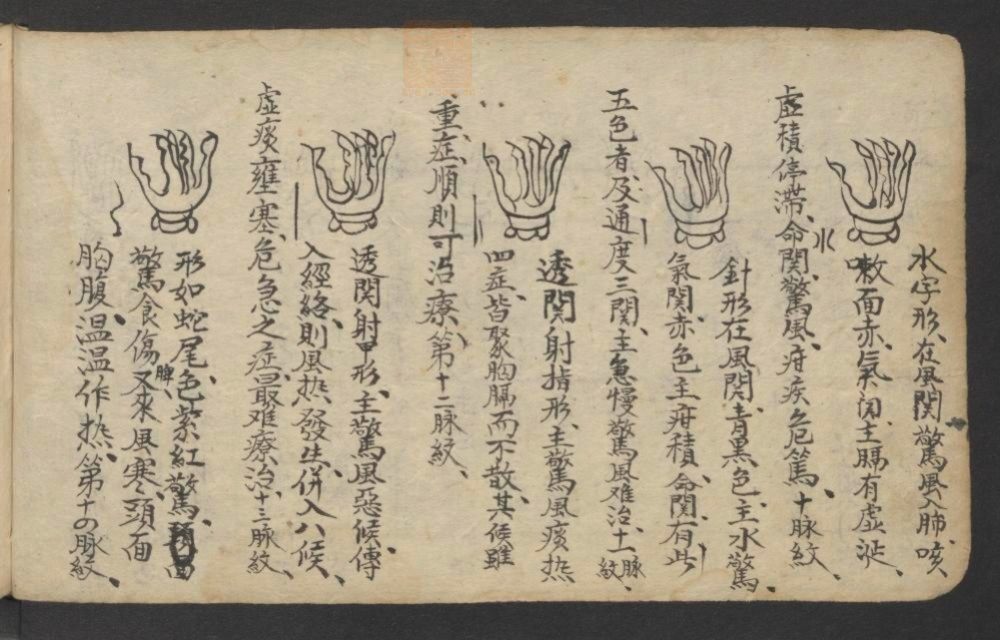 水字形、在風関驚風入肺咳
嗽面赤、氣関主膈有虚涎、
水
虚積停滞、命関驚風疳疾危篤、十脉紋、
針形在風関青黒色主水驚、
氣関赤色主疳積、命関有此
五色者及通度三関、主急慢驚風难治、十一脉紋
透関射指形、主驚風痰热
四症、皆聚胸膈而不散、其候雖
重症、順則可治療、第十二脉紋、
透関射甲形、主驚風惡候傳
入經絡、則風热發生、併入八候、
虚痰壅塞、危急之症、最难療治、十三脉紋、
形如蛇尾、色紫紅、驚、
驚食傷脾、又來風寒、頭面
胸腹、温温作热、第十の脉紋、